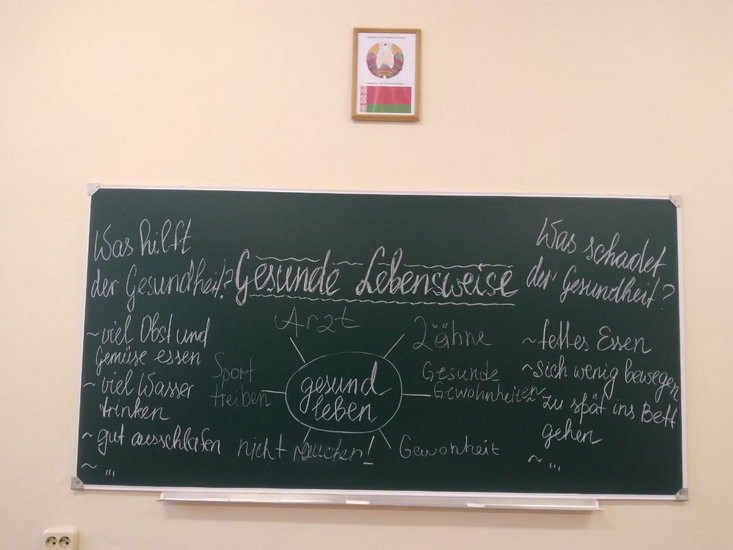 Gesunde Lebensweise
Was hilft
der Gesundheit?
~ viel Obst und
Gemüse essen
~ viel Wasser
trinken
~ gut ausschlafen
~ ...
Arzt
Zähne
Sport
treiben
gesund
leben
Gesunde
Gewohnheiten
nicht rauchen!
Gewonheit
Was schadet
der Gesundheit?
~ fettes Essen
~ sich wenig bewegen
~ zu spät ins Bett
gehen
~ ...